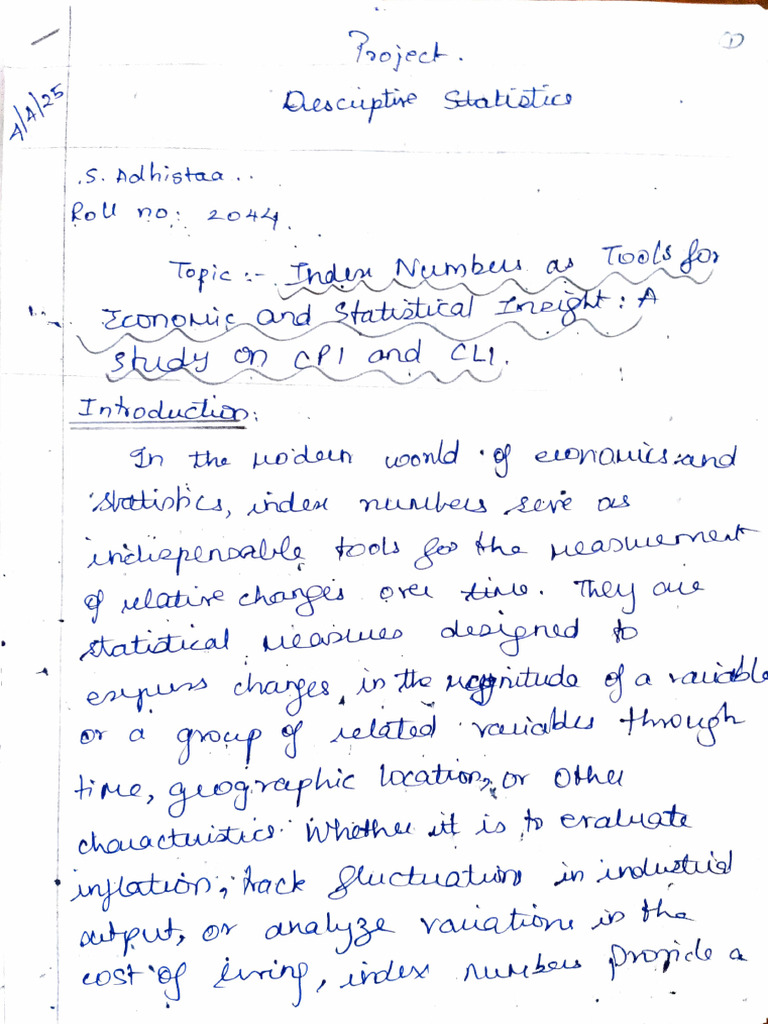 ①
Project.
Descriptive Statistics
4/4/25
S. Adhistaa..
Roll no: 2044.
Topic :- Index Numbers as Tools for
Economic and Statistical Insight: A
Study on CPI and CLI.
Introduction:
In the modern world of economics and
statistics, index numbers serve as
indispensable tools for the measurement
of relative changes over time. They are
statistical measures designed to
express changes in the magnitude of a variable
or a group of related variables through
time, geographic location, or other
characteristics. Whether it is to evaluate
inflation, track fluctuations in industrial
output, or analyze variations in the
cost of living, index numbers provide a